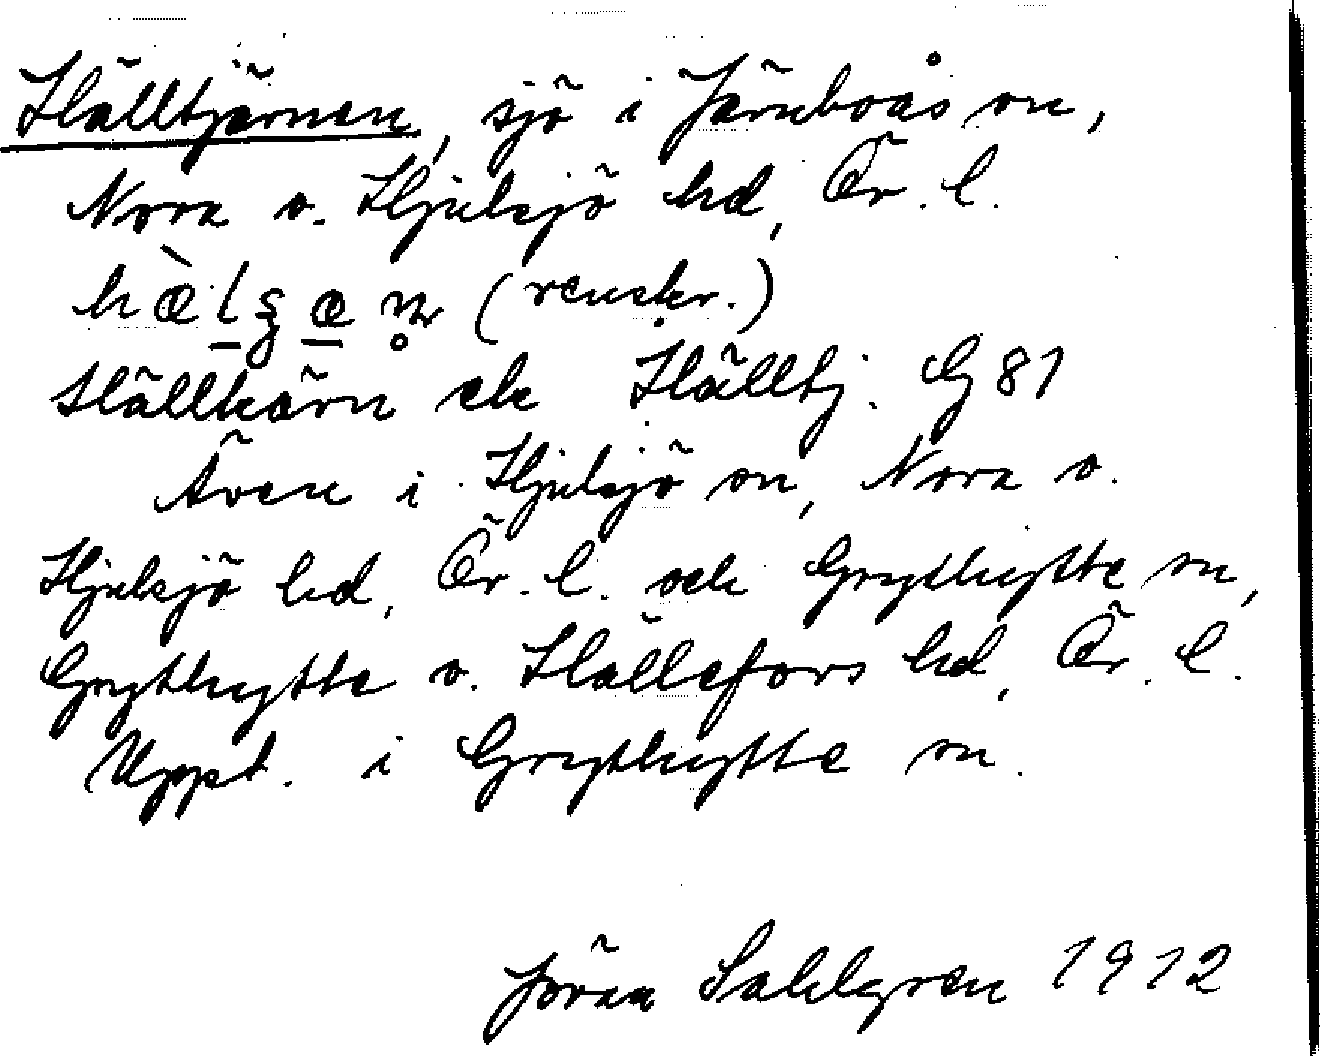 Hälltjärnen, sjö i Järnboås sn,
Nora o. Hjulsjö hd, Ör. l.
(renskr.)
Hällkärn ell Hälltj. G 81
Även i Hjulsjö sn, Nora o.
Hjulsjö hd, Ör. l. och Grythytte sn,
Grythytte o. Hällefors hd, Ör. l.
Uppt. i Grythytte sn.
Jöran Sahlgren 1912